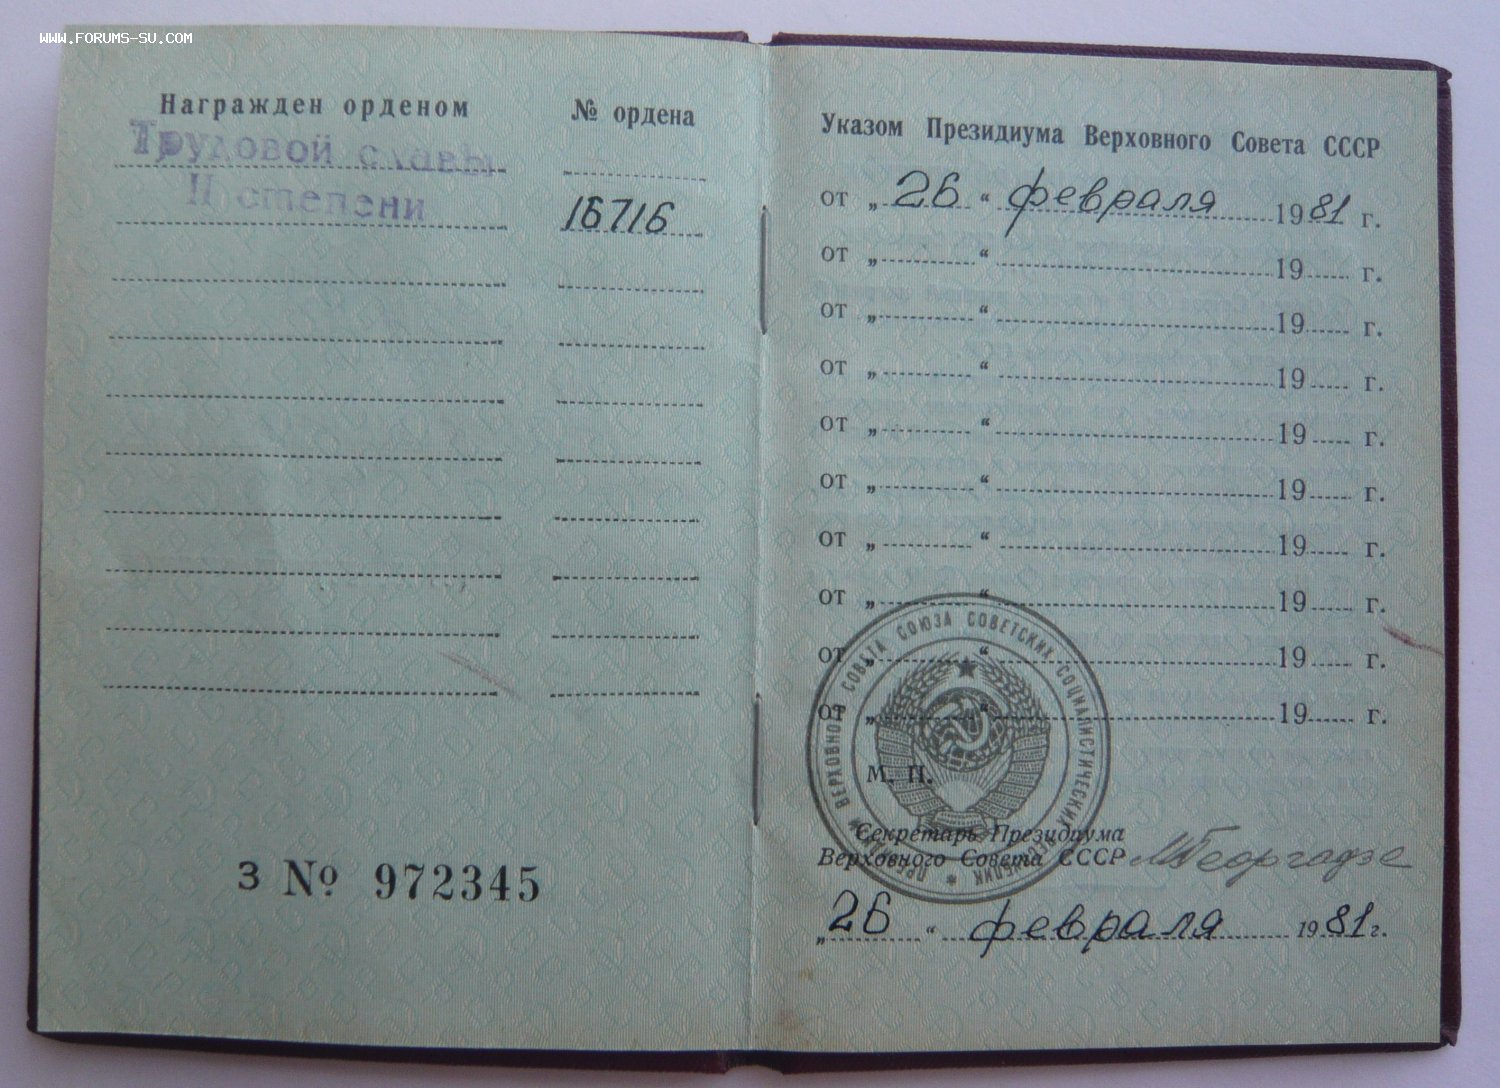 WWW.FORUMS-SU.COM
Награжден орденом
№ ордена
Трудовой славы
II степени
16716
З № 972345
Указом Президиума Верховного Совета СССР
от „ 26 “ февраля 1981 г.
от „ “ 19 г.
от „ “ 19 г.
от „ “ 19 г.
от „ “ 19 г.
от „ “ 19 г.
от „ “ 19 г.
от „ “ 19 г.
от „ “ 19 г.
от „ “ 19 г.
ПРЕЗИДИУМ ВЕРХОВНОГО СОВЕТА СОЮЗА СОВЕТСКИХ СОЦИАЛИСТИЧЕСКИХ РЕСПУБЛИК
М. П.
Секретарь Президиума
Верховного Совета СССР МГеоргадзе
„ 26 “ февраля 1981 г.